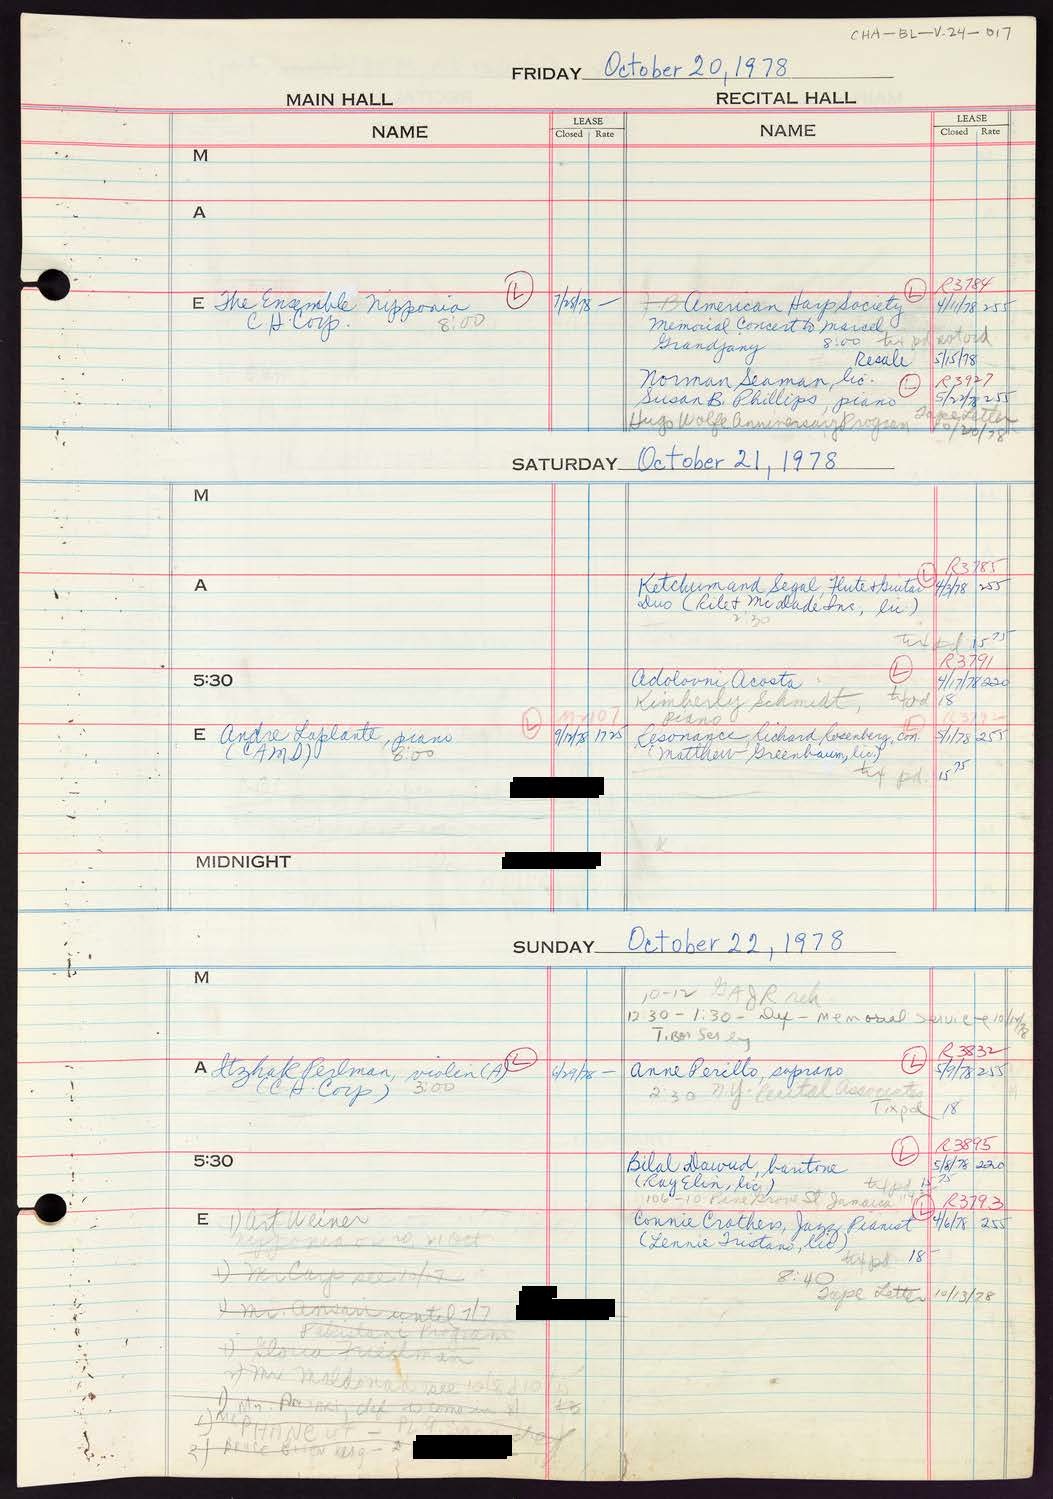 CHA-BL-V.24-017
FRIDAY October 20, 1978
MAIN HALL RECITAL HALL
NAME LEASE Closed Rate NAME LEASE Closed Rate
M
A
R3784
E The Ensemble Nipponia L 7/28/78 — American Harp Society L 4/11/78 255
C.H. Corp. 8:00 Memorial Concert to Marcel
Grandjany 8:00
Resale 5/15/78
Norman Seaman, lic. L R3927
Susan B. Phillips, piano 5/22/78 255
Hugo Wolfe Anniversary Program Tape Letter
10/20/78
SATURDAY October 21, 1978
M
R3785
A Ketchum and Segal, Flute & Guitar L 4/3/78 255
Duo (Rilet McDade Inc, lic)
2:30
tix pd 15 75
L R3791
5:30 Adolovni Acosta 4/17/78 220
Kimberly Schmidt, tix pd 18
piano
E Andre Laplante, piano L 9/12/78 1725 Resonance, Richard Rosenberg, con. 5/1/78 255
(CAMI) 8:00 (Matthew Greenbaum, lic.)
tix pd. 15 75
MIDNIGHT
SUNDAY October 22, 1978
M
10-12 reh
12:30 - 1:30 - Def - Memorial Service
Tibor Serly
R3832
A Itzhak Perlman, violin (A) L 6/29/78 — Anne Perillo, soprano L 5/9/78 255
(C.H. Corp) 3:00 2:30 N.Y. Recital Associates
Tix pd 18
L R3895
5:30 Bilal Dawud, baritone 5/8/78 220
(Ray Elin, lic) tix pd 15 75
106-10 Pinegrove St Jamaica
L R3793
E 1) Art Weiner Connie Crothers, Jazz Pianist 4/6/78 255
(Lennie Tristano, lic)
tix pd. 18 —
1) Mr Carp see 10/7
8:40
Tape Letter 10/13/78
1) Mr. Ansari until 7/7
Pakistani Program
1) Gloria Friedman
2) Mr Maldonado see 10/8